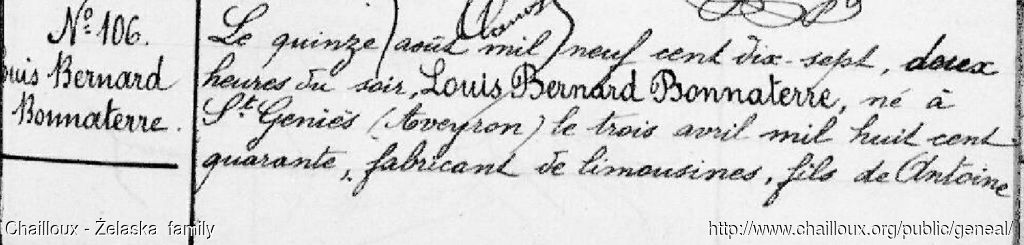 Nº 106.
ouis Bernard
Bonnaterre.
Le quinze août mil neuf cent dix-sept, deux
heures du soir, Louis Bernard Bonnaterre, né à
St Geniès (Aveyron) le trois avril mil huit cent
quarante, fabricant de limousines, fils de Antoine
Chailloux - Żelaska family
http://www.chailloux.org/public/geneal/